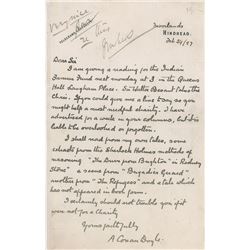 Moorlands
HINDHEAD.
Feb 24/97
Dear Sir
I am giving a reading for the Indian
Famine Fund next monday at 3 in the Queens
Hall Langham Place. Sir Walter Besant takes the
chair. If you could give me a line to say so you
might help a most needful charity. I have
advertised for a week in your columns, but it is
liable to be overlooked or forgotten.
I shall read from my own tales, some
extracts from the Sherlock Holmes methods of
reasoning "The Drive from Brighton" in Rodney
Stone" a scene from "Brigadier Gerard"
another from "The Refugees" and a tale which
has not appeared in book form.
I certainly should not trouble you if it
were not for a charity
Yours faithfully
A Conan Doyle.